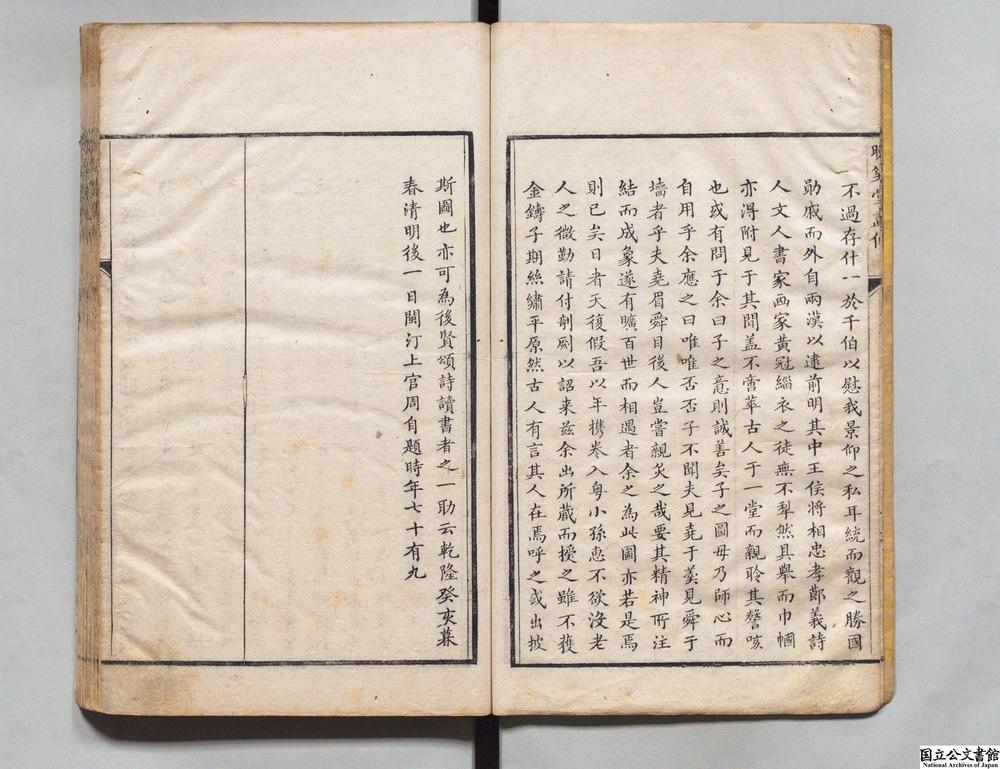 晩笑堂畫傳
不過存什一於千伯以慰我景仰之私耳統而觀之勝國
勛戚而外自兩漢以逮前明其中王侯將相忠孝節義詩
人文人書家画家黄冠緇衣之徒無不犁然具舉而巾幗
亦淂附見于其間盖不啻萃古人于一堂而親聆其謦咳
也或有問于余曰子之意則誠善矣子之圖毋乃師心而
自用乎余應之曰唯唯否否子不聞夫見堯于羹見舜于
墻者乎夫堯眉舜目後人豈嘗親炙之哉要其精神所注
結而成象遂有曠百世而相遇者余之為此圖亦若是焉
則已矣日者天復假吾以年携卷入粤小孫惠不欲沒老
人之微勤請付剞劂以詔来兹余出所藏而授之雖不獲
金鑄子期絲繡平原然古人有言其人在焉呼之或出披
斯圖也亦可為後賢頌詩讀書者之一助云乾隆癸亥暮
春清明後一日閩汀上官周自題時年七十有九
国立公文書館
National Archives of Japan